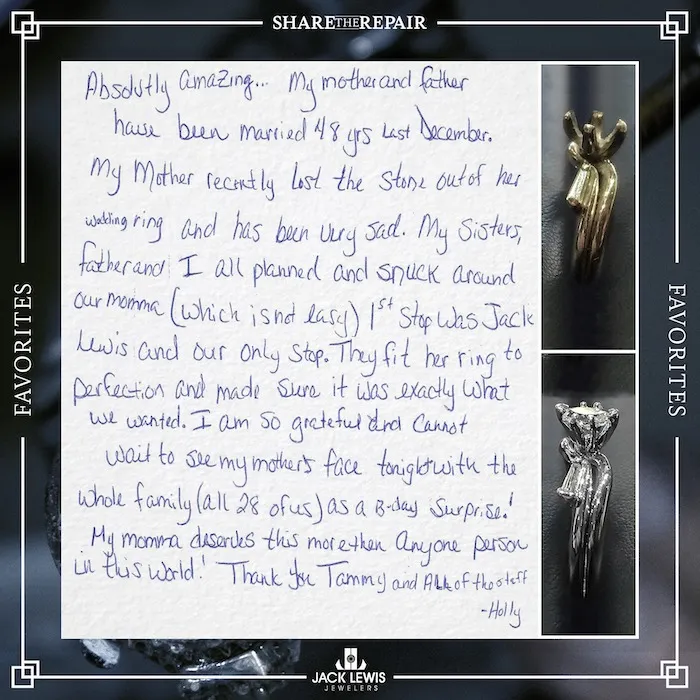 SHARETHEREPAIR
FAVORITES
Absolutly amazing... My mother and father
have been married 48 yrs last December.
My Mother recently lost the stone out of her
wedding ring and has been very sad. My sisters,
father and I all planned and snuck around
our momma (which is not easy) 1st stop was Jack
Lewis and our only stop. They fit her ring to
perfection and made sure it was exactly what
we wanted. I am so grateful and cannot
wait to see my mother's face tonight with the
whole family (all 28 of us) as a B-day surprise!
My momma deserves this more then anyone person
in this world! Thank you Tammy and All of the staff
-Holly
FAVORITES
JACK LEWIS
JEWELERS